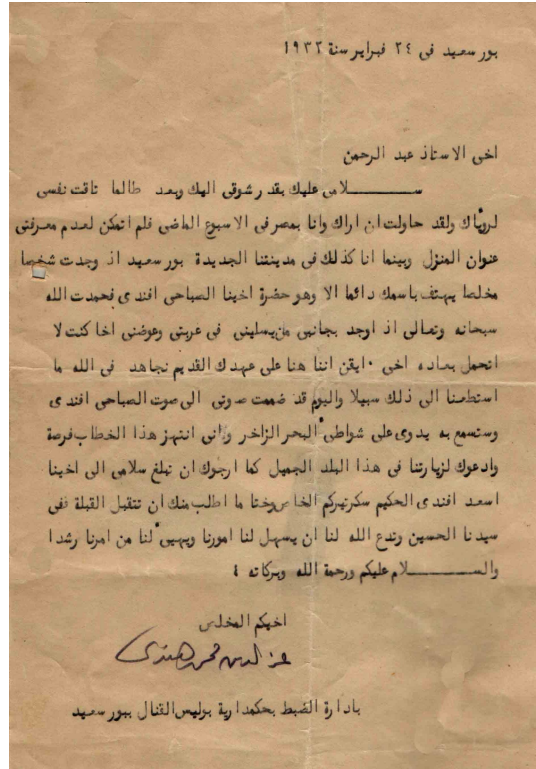 بور سعيد فى ٢٤ فبراير سنة ١٩٣٢
اخى الاستاذ عبد الرحمن
ســــــلامى عليك بقدر شوقى اليك وبعد طالما تاقت نفسى
لرؤياك ولقد حاولت ان اراك وانا بمصر فى الاسبوع الماضى فلم اتمكن لعدم معرفتى
عنوان المنزل وبينما انا كذلك فى مدينتنا الجديدة بور سعيد اذ وجدت شخصا
مخلصا يهتف باسمك دائما الا وهو حضرة اخينا الصباحى افندى فحمدت الله
سبحانه وتعالى اذ اوجد بجانبى من يسلينى فى غربتى وعوضنى اخا كنت لا
اتحمل بعاده اخى ٠ ايقن اننا هنا على عهدك القديم نجاهد فى الله ما
استطعنا الى ذلك سبيلا واليوم قد ضممت صوتى الى صوت الصباحى افندى
وستسمع به يدوى على شواطئ البحر الزاخر وانى انتهز هذا الخطاب فرصة
وادعوك لزيارتنا فى هذا البلد الجميل كما ارجوك ان تبلغ سلامى الى اخينا
اسعد افندى الحكيم سكرتيركم الخاص وختا ما اطلب منك ان تتقبل القبلة ففى
سيدنا الحسين وتدع الله لنا ان يسهل لنا امورنا ويهيئ لنا من امرنا رشدا
والســــــلام عليكم ورحمة الله وبركاته ٤
اخيكم المخلص
عز الدين محمد هندى
بادارة الضبط بحكمدارية بوليس القنال ببور سعيد